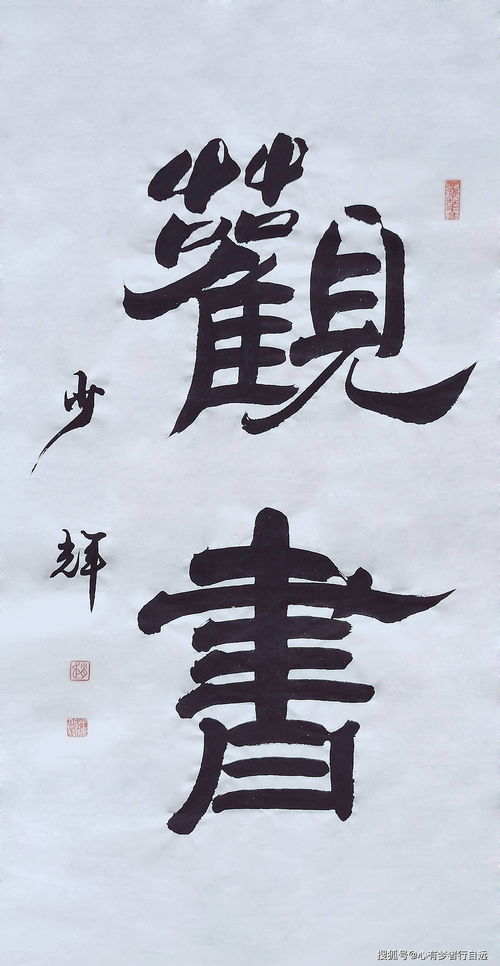 觀
書
少輝
搜狐号@心有梦者行自远